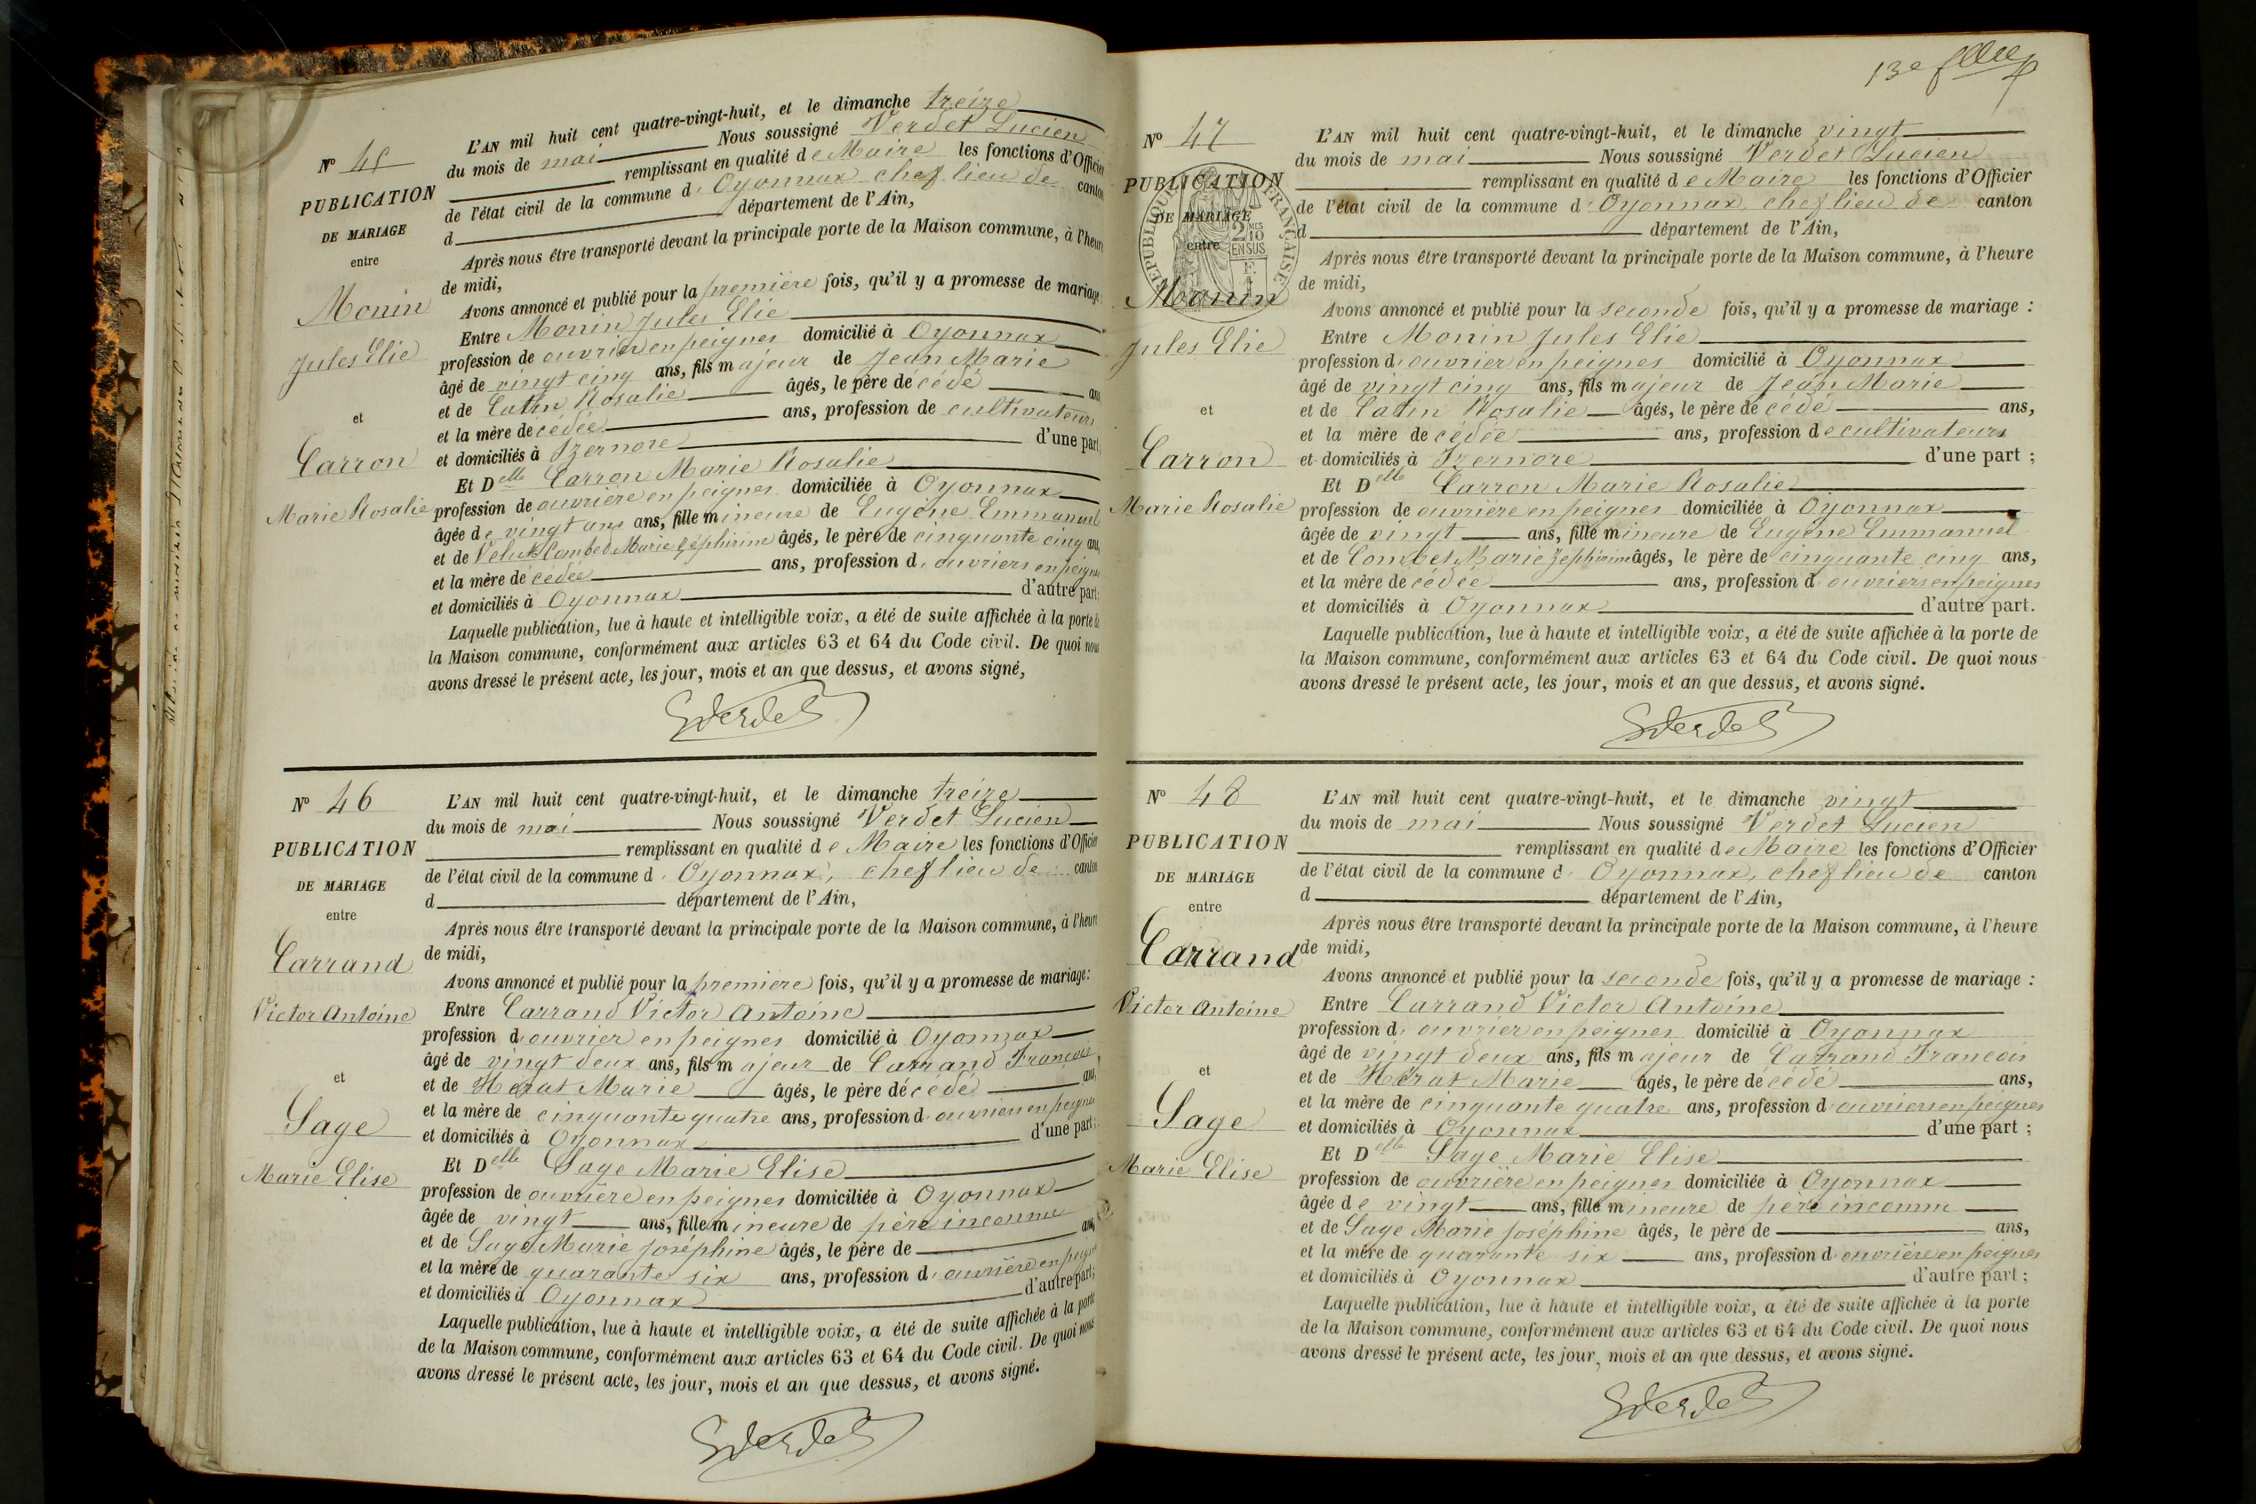 Nº 45
PUBLICATION
DE MARIAGE
entre
Monin
Jules Elie
et
Carron
Marie Rosalie
L'AN mil huit cent quatre-vingt-huit, et le dimanche treize
du mois de mai Nous soussigné Verdet Lucien
remplissant en qualité de Maire les fonctions d'Officier
de l'état civil de la commune d'Oyonnax chef lieu de canton
d département de l'Ain,
Après nous être transporté devant la principale porte de la Maison commune, à l'heure
de midi,
Avons annoncé et publié pour la première fois, qu'il y a promesse de mariage
Entre Monin Jules Elie
profession de ouvrier en peignes domicilié à Oyonnax
âgé de vingt cinq ans, fils majeur de Jean Marie
et de Catin Rosalie âgés, le père décédé ans
et la mère décédée ans, profession de cultivateurs
et domiciliés à Izernore d'une part
Et Delle Carron Marie Rosalie
profession de ouvrière en peignes domiciliée à Oyonnax
âgée de vingt ans ans, fille mineure de Eugène Emmanuel
et de Combet Marie Zéphirine âgés, le père de cinquante cinq ans,
et la mère décédée ans, profession d'ouvriers en peignes
et domiciliés à Oyonnax d'autre part
Laquelle publication, lue à haute et intelligible voix, a été de suite affichée à la porte de
la Maison commune, conformément aux articles 63 et 64 du Code civil. De quoi nous
avons dressé le présent acte, les jour, mois et an que dessus, et avons signé,
Verdet
Nº 46
PUBLICATION
DE MARIAGE
entre
Carrand
Victor Antoine
et
Sage
Marie Elise
L'AN mil huit cent quatre-vingt-huit, et le dimanche treize
du mois de mai Nous soussigné Verdet Lucien
remplissant en qualité de Maire les fonctions d'Officier
de l'état civil de la commune d'Oyonnax, chef lieu de canton
d département de l'Ain,
Après nous être transporté devant la principale porte de la Maison commune, à l'heure
de midi,
Avons annoncé et publié pour la première fois, qu'il y a promesse de mariage:
Entre Carrand Victor Antoine
profession d'ouvrier en peignes domicilié à Oyonnax
âgé de vingt deux ans, fils majeur de Carrand François
et de Hérat Marie âgés, le père décédé ans,
et la mère de cinquante quatre ans, profession d'ouvriers en peignes
et domiciliés à Oyonnax d'une part;
Et Delle Sage Marie Elise
profession de ouvrière en peignes domiciliée à Oyonnax
âgée de vingt ans, fille mineure de père inconnu
et de Sage Marie Joséphine âgés, le père de ans,
et la mère de quarante six ans, profession d'ouvrière en peignes
et domiciliés à Oyonnax d'autre part;
Laquelle publication, lue à haute et intelligible voix, a été de suite affichée à la porte
de la Maison commune, conformément aux articles 63 et 64 du Code civil. De quoi nous
avons dressé le présent acte, les jour, mois et an que dessus, et avons signé.
Verdet
13e
Nº 47
PUBLICATION
DE MARIAGE
entre
RÉPUBLIQUE FRANÇAISE
2 MES
10
EN SUS
Monin
Jules Elie
et
Carron
Marie Rosalie
L'AN mil huit cent quatre-vingt-huit, et le dimanche vingt
du mois de mai Nous soussigné Verdet Lucien
remplissant en qualité de Maire les fonctions d'Officier
de l'état civil de la commune d'Oyonnax, chef lieu de canton
d département de l'Ain,
Après nous être transporté devant la principale porte de la Maison commune, à l'heure
de midi,
Avons annoncé et publié pour la seconde fois, qu'il y a promesse de mariage :
Entre Monin Jules Elie
profession d'ouvrier en peignes domicilié à Oyonnax
âgé de vingt cinq ans, fils majeur de Jean Marie
et de Catin Rosalie âgés, le père décédé ans,
et la mère décédée ans, profession de cultivateurs
et domiciliés à Izernore d'une part ;
Et Delle Carron Marie Rosalie
profession de ouvrière en peignes domiciliée à Oyonnax
âgée de vingt ans, fille mineure de Eugène Emmanuel
et de Combet Marie Zéphirine âgés, le père de cinquante cinq ans,
et la mère décédée ans, profession d'ouvriers en peignes
et domiciliés à Oyonnax d'autre part.
Laquelle publication, lue à haute et intelligible voix, a été de suite affichée à la porte de
la Maison commune, conformément aux articles 63 et 64 du Code civil. De quoi nous
avons dressé le présent acte, les jour, mois et an que dessus, et avons signé.
Verdet
Nº 48
PUBLICATION
DE MARIAGE
entre
Carrand
Victor Antoine
et
Sage
Marie Elise
L'AN mil huit cent quatre-vingt-huit, et le dimanche vingt
du mois de mai Nous soussigné Verdet Lucien
remplissant en qualité de Maire les fonctions d'Officier
de l'état civil de la commune d'Oyonnax, chef lieu de canton
d département de l'Ain,
Après nous être transporté devant la principale porte de la Maison commune, à l'heure
de midi,
Avons annoncé et publié pour la seconde fois, qu'il y a promesse de mariage :
Entre Carrand Victor Antoine
profession d'ouvrier en peignes domicilié à Oyonnax
âgé de vingt deux ans, fils majeur de Carrand François
et de Hérat Marie âgés, le père décédé ans,
et la mère de cinquante quatre ans, profession d'ouvriers en peignes
et domiciliés à Oyonnax d'une part ;
Et Delle Sage Marie Elise
profession de ouvrière en peignes domiciliée à Oyonnax
âgée de vingt ans, fille mineure de père inconnu
et de Sage Marie Joséphine âgés, le père de ans,
et la mère de quarante six ans, profession d'ouvrière en peignes
et domiciliés à Oyonnax d'autre part ;
Laquelle publication, lue à haute et intelligible voix, a été de suite affichée à la porte
de la Maison commune, conformément aux articles 63 et 64 du Code civil. De quoi nous
avons dressé le présent acte, les jour, mois et an que dessus, et avons signé.
Verdet